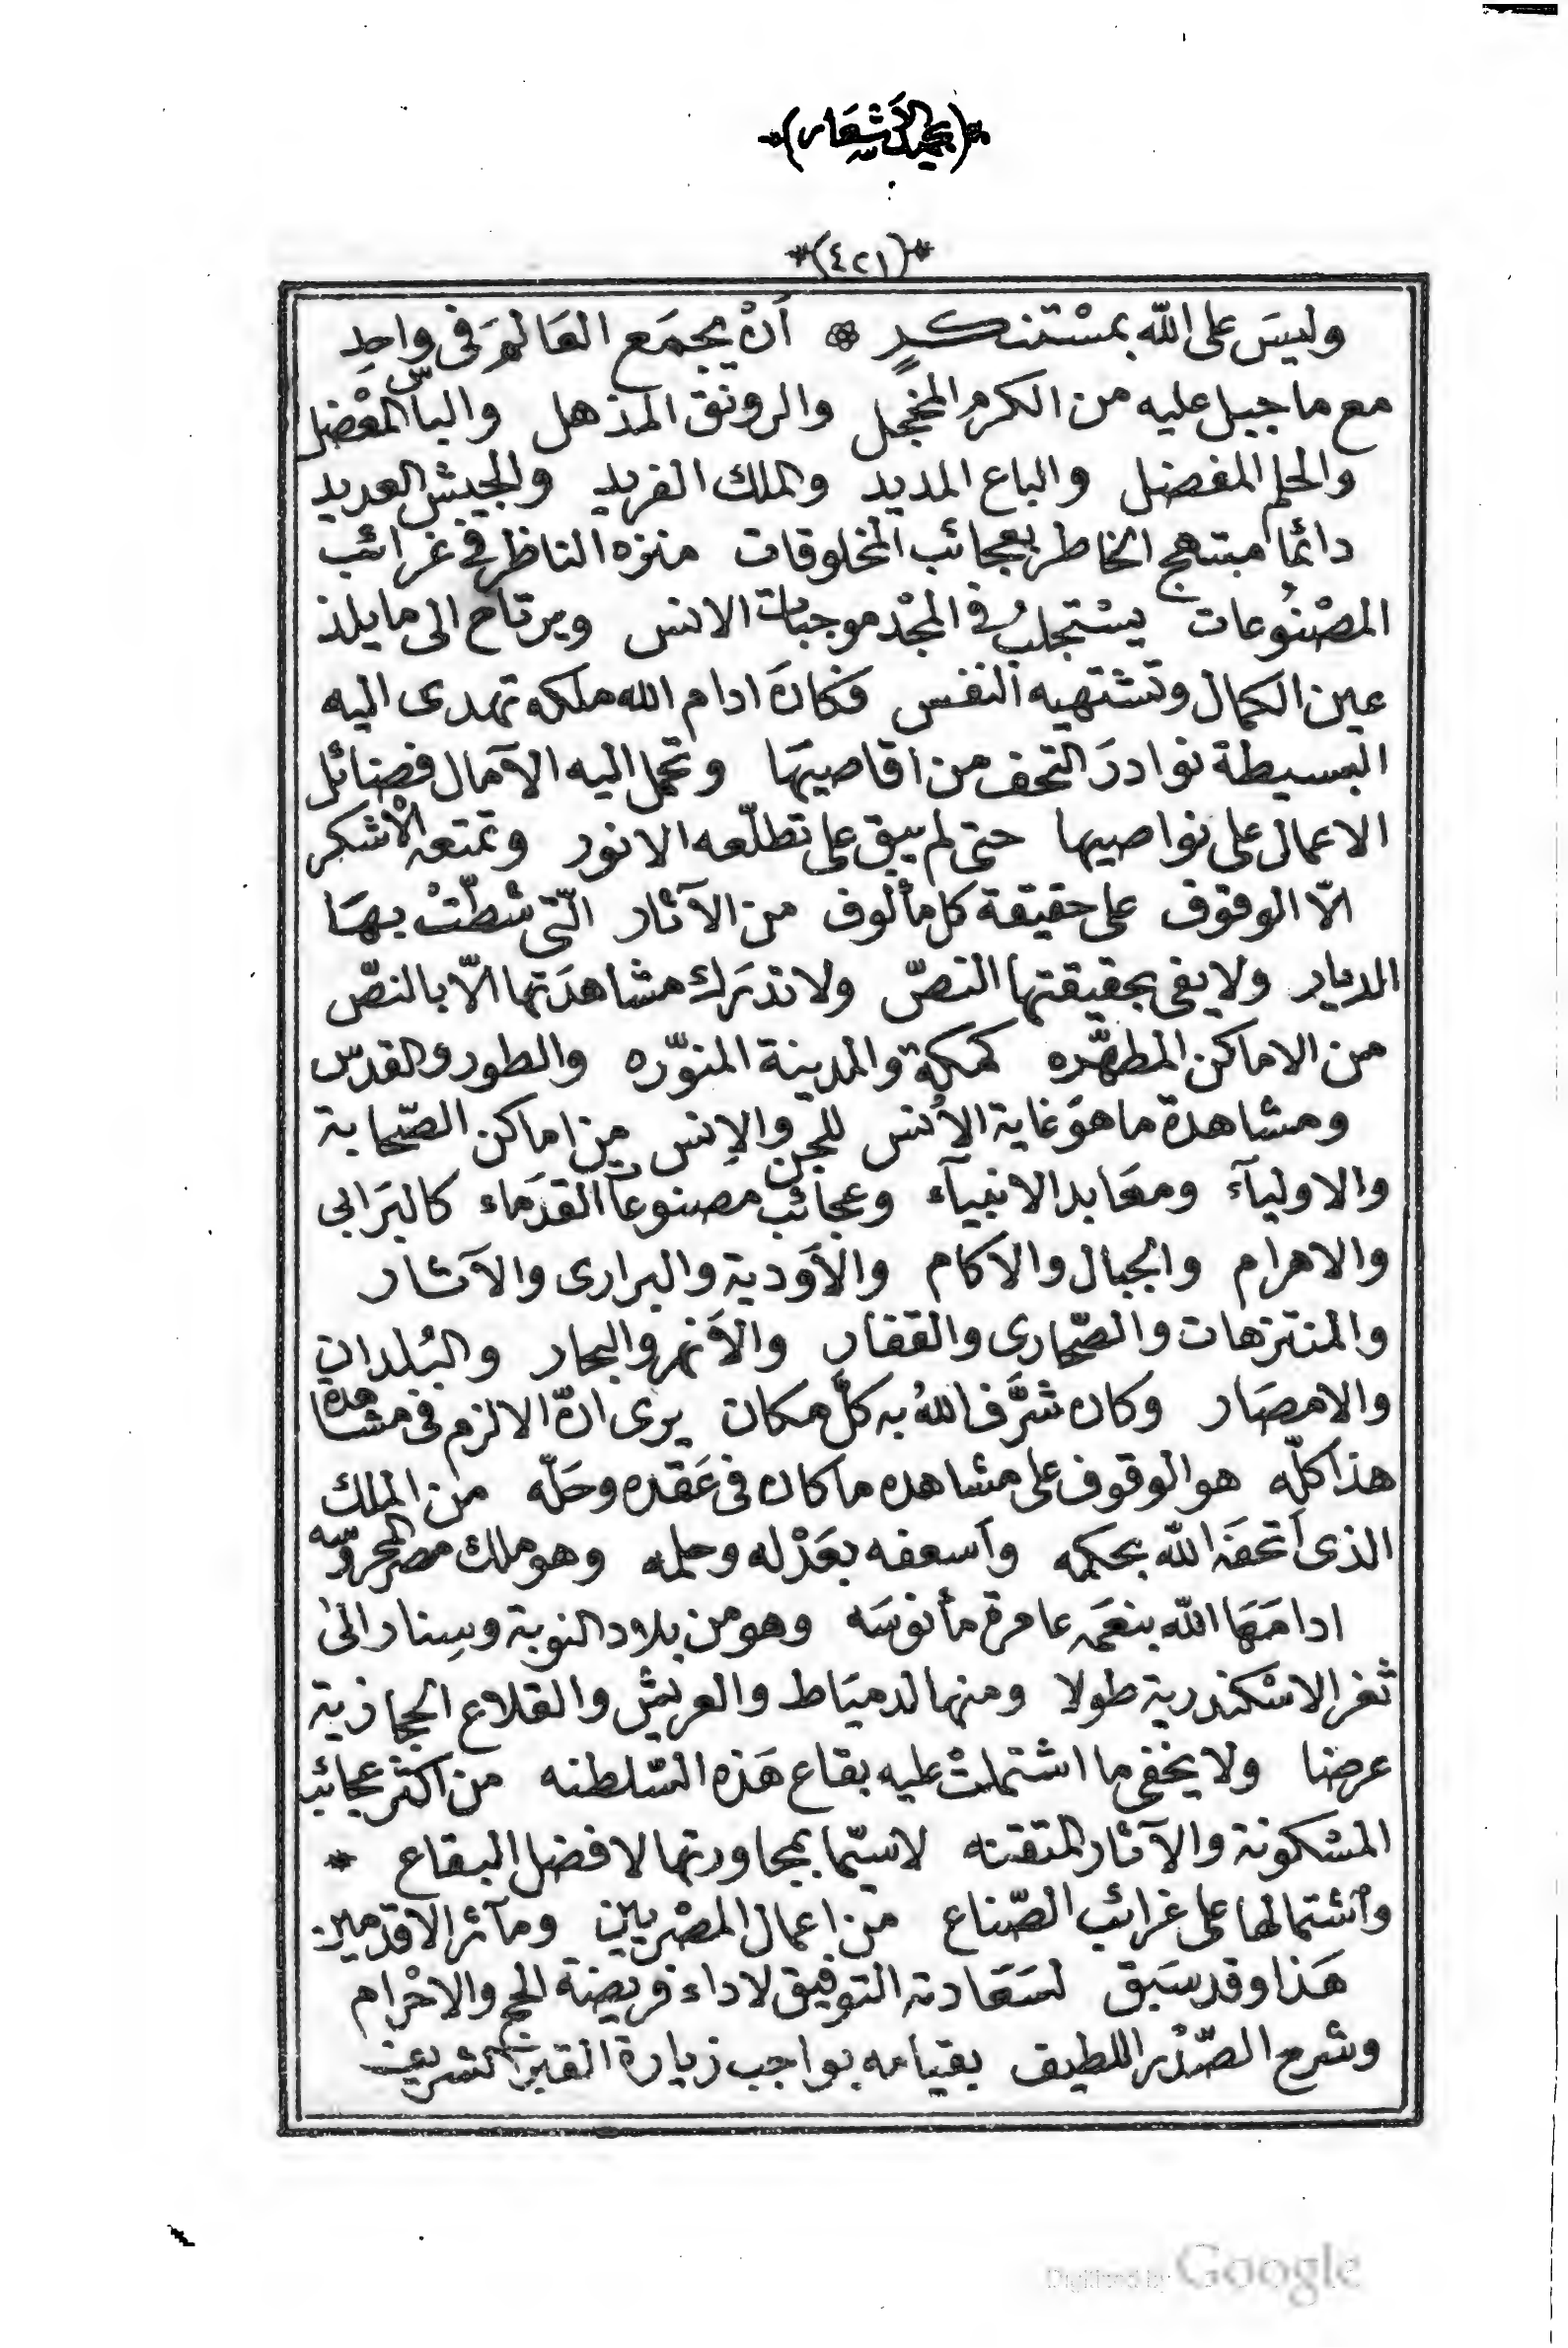 *(٤٢١)*
وليسَ على الله بمسْتنكرٍ ۞ أنْ يجمَع العَالمَ فى واحِدِ
مع ما جبل عليه من الكرم المخجل والرونق المذهل والبأس المعْضل
والحلم المفضل والباع المديد والملك الفريد والجيش العديد
دائمًا مبتهج الخاطر بعجائب المخلوقات منزه الناظر فى غرائب
المصْنُوعات يسْتجلبُ فى المجْد موجبات الانس ويرتاح الى ما يلذ
عين الكمال وتشتهيه النفس فكانَ ادام الله ملكه تهدى اليه
البسيطة نوادرَ التحف من اقاصيهَا وتحمل اليه الآمال فضائل
الاعمال على نواصيها حتى لم يبق على تطلّعه الانور وتمتعه الْاشكر
الّا الوقوف على حقيقة كل مألوف من الآثار الّتى شطّتْ بهَا
الديار ولا يفى بحقيقتها النصّ ولا تدرَك مشاهدَتها الّا بالنصّ
من الاماكن المطهّره كمكة والمدينة المنوّره والطور والقدس
ومشاهدة ما هوَ غاية الأُنس للجن والإنس مِن اماكن الصّحابة
والاوليآء ومعَابد الانبيآء وعجائب مَصنوعات القدَماء كالبرَابى
والاهرام والجبال والآكام والأوَدية والبرارى والآثار
والمنتزهات والصّحارى والقفار والأنهر والبحار والبُلدان
والامصَار وكان شرَّف اللهُ به كلّ مكان يرى انّ الالزم فى مشاهدة
هذا كلّه هو الوقوف على مشاهده ما كان فى عَقده وحَلّه من الملك
الذى أتحفَه الله بحكمه وأسعفه بعَدْله وحلمه وهو ملك مصر المحروسه
ادامَهَا الله بنعَمه عامرة مأنوسَه وهو من بلاد النوبة وسِنار الىٰ
ثغر الاسْكندرية طولا ومنها لدميَاط والعريش والقلاع الحجازية
عرضا ولا يخفى ما اشتملتْ عليه بقاع هَذه السّلطنه من اكثر عجائب
المسكونة والآثار المتقنه لاسيّما بمجاورتها لافضل البقاع *
وأشتمالها على غرائب الصّناع من اعمال المصْريين ومآثر الاقدمين
هَذا وقد سبَق لسَعَادته التوفيق لاداء فريضة الحج والاحْرام
وشرح الصّدْر اللطيف بقيامه بواجب زيارة القبر الشريف
Digitized by Google